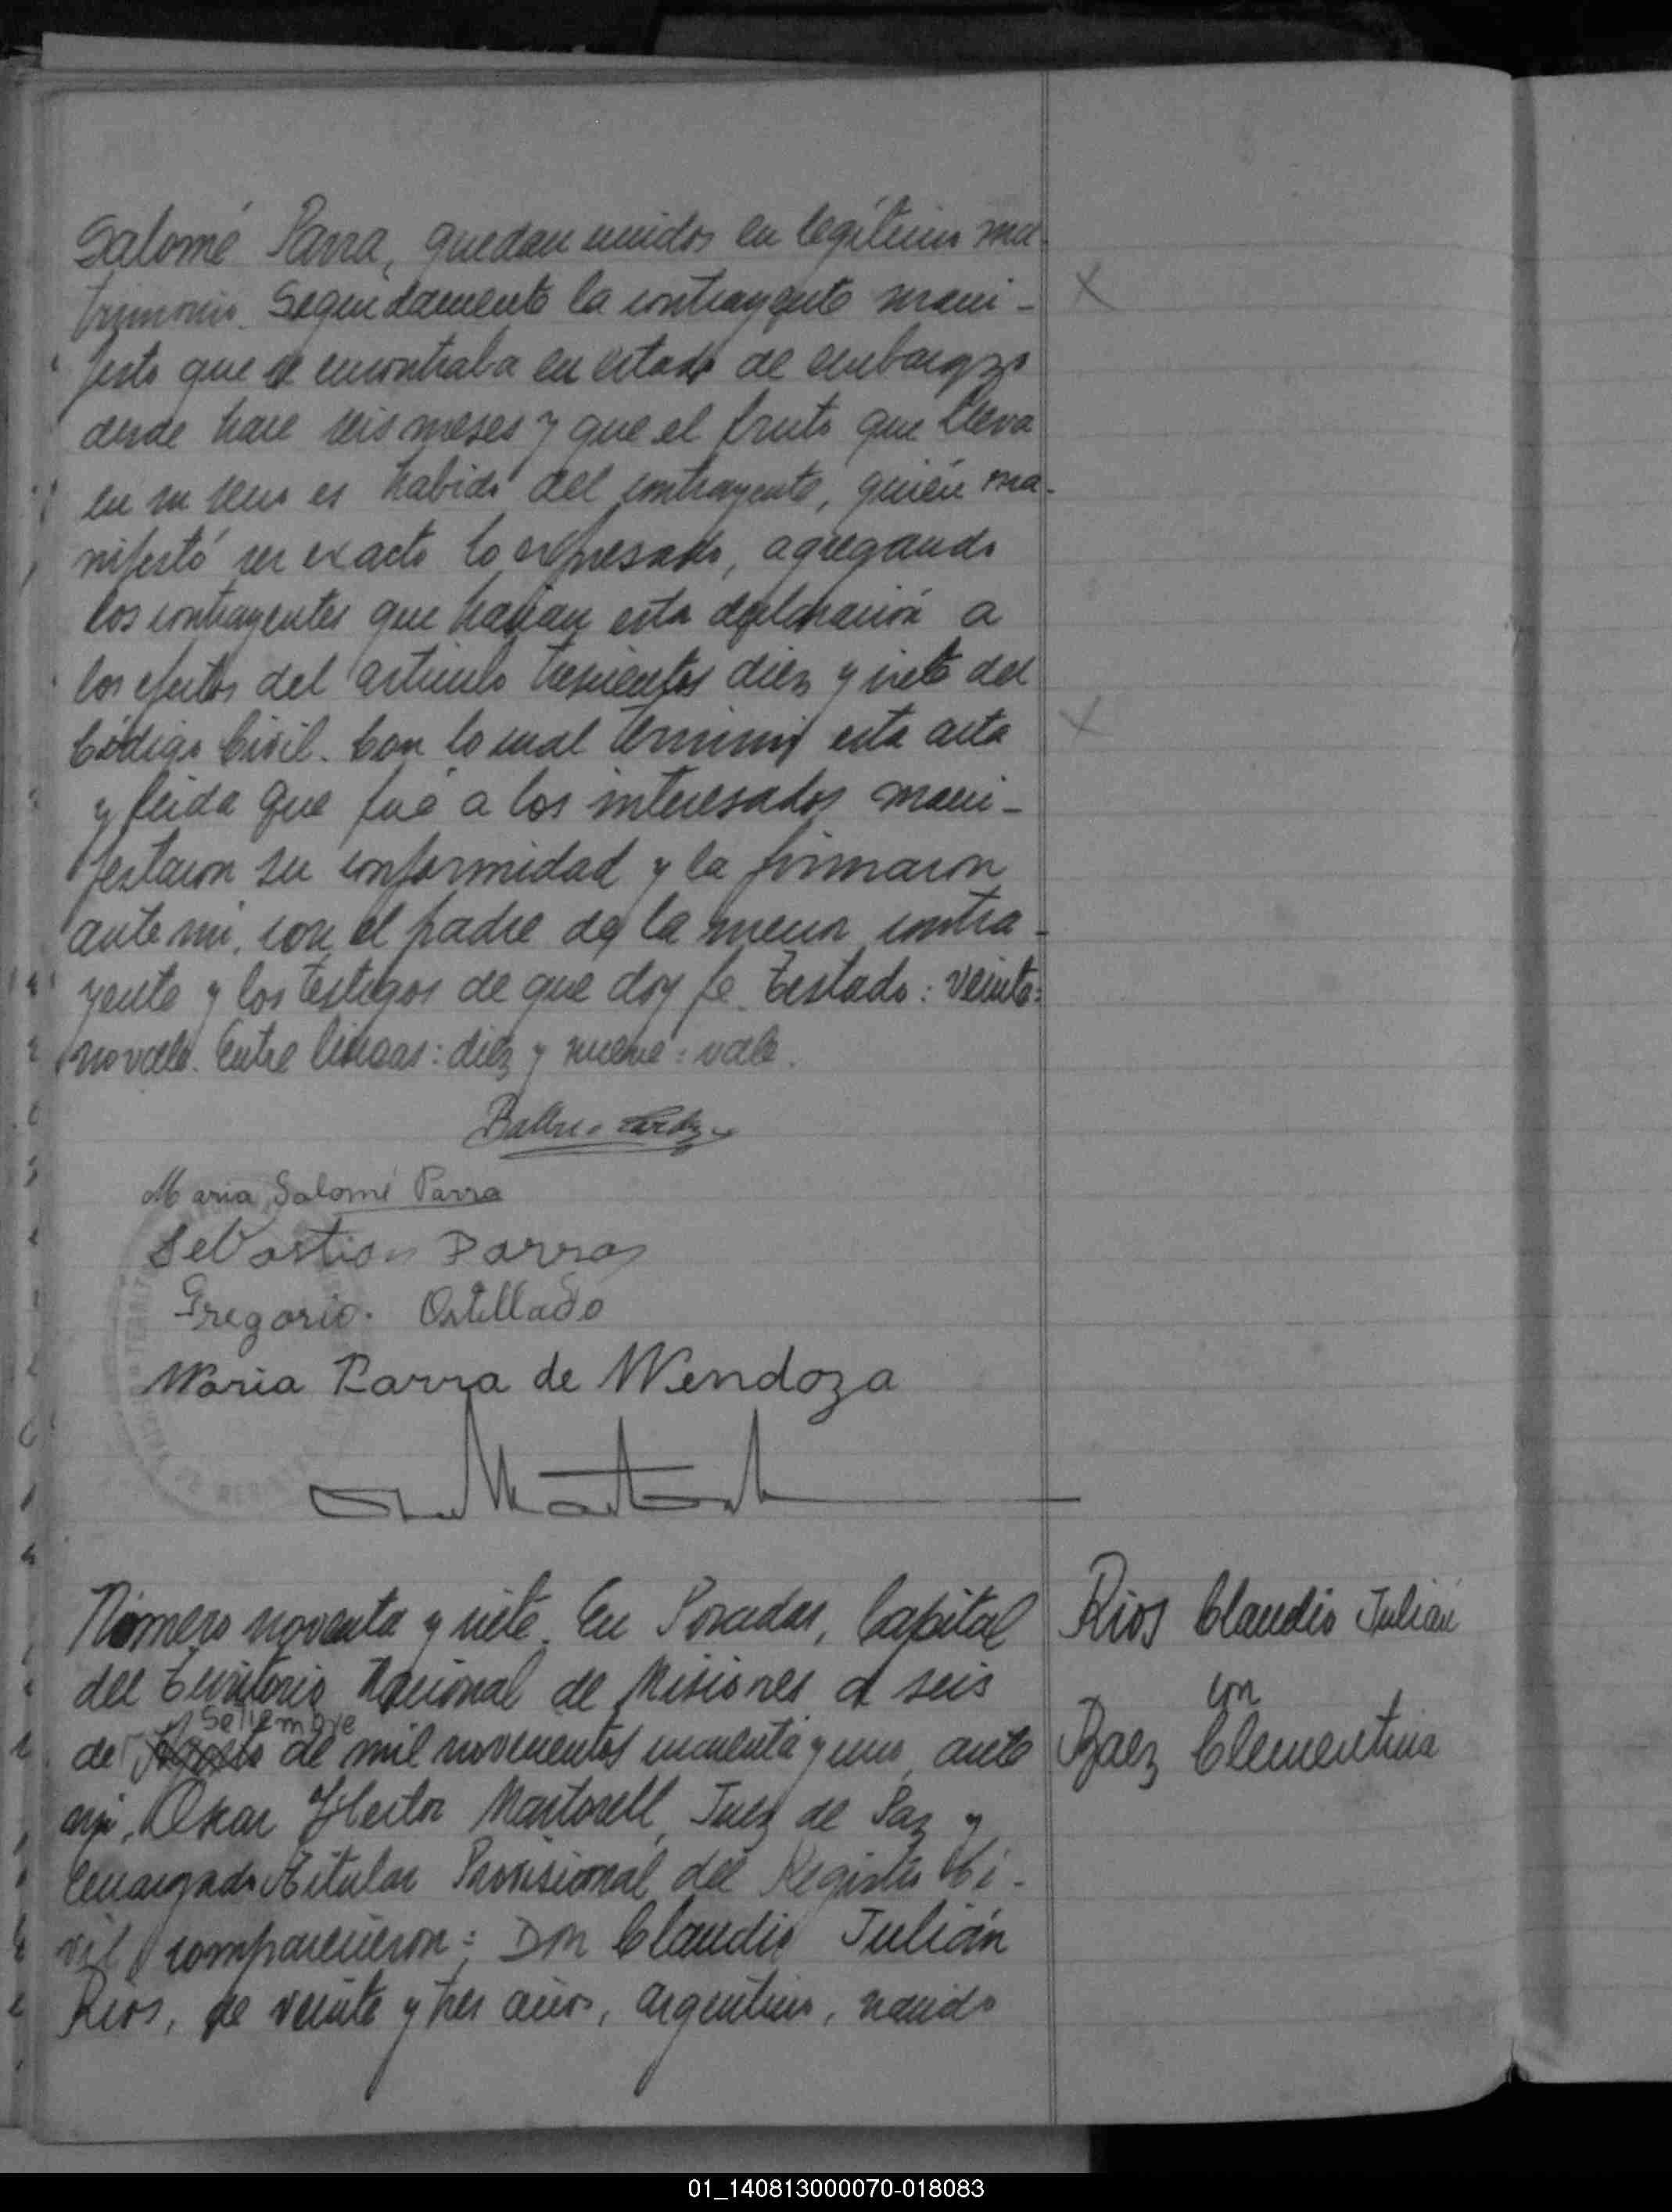 Salomé Parra, quedan unidos en legítimo ma-
trimonio. Seguidamente la contrayente mani-
festó que se encontraba en estado de embarazo
desde hace seis meses y que el fruto que lleva
en su seno es habido del contrayente, quién ma-
nifestó ser exacto lo expresado, agregando
los contrayentes que hacían esta declaración a
los efectos del artículo trescientos diez y siete del
Código Civil. Con lo cual terminó esta acta
y leída que fué a los interesados mani-
festaron su conformidad y la firmaron
ante mí, con el padre de la menor contra-
yente y los testigos de que doy fe. Testado: veinte:
no vale. Entre líneas: diez y nueve: vale.
Maria Salomé Parra
Sebastian Parra
Gregorio. Ostillado
Maria Parra de Mendoza
Número noventa y siete. En Posadas, Capital
del Territorio Nacional de Misiones a seis
Setiembre
de Agosto de mil novecientos cincuenta y uno, ante
mí, Oskar Hector Martorell, Juez de Paz y
Encargado Titular Provisional del Registro Ci-
vil, comparecieron: Don Claudio Julián
Rios, de veinte y tres años, argentino, nacido
Rios Claudio Julián
con
Baez Clementina
01_140813000070-018083